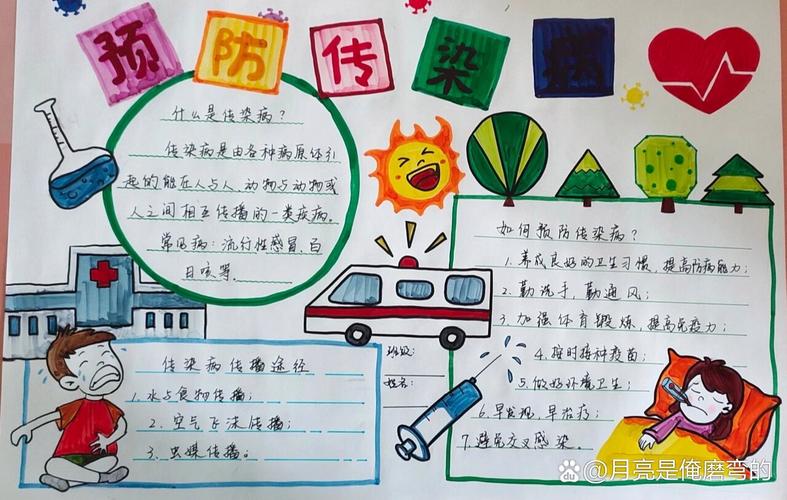 预防传染病
什么是传染病?
传染病是由各种病原体引
起的能在人与人、动物与动物或
人之间相互传播的一类疾病。
常见病:流行性感冒、百
日咳等。
传染病传播途经
1.水与食物传播;
2.空气飞沫传播;
3.虫媒传播。
班级:
姓名:
如何预防传染病?
1.养成良好的卫生习惯,提高防病能力;
2.勤洗手,勤通风;
3.加强体育锻炼,提高免疫力;
4.按时接种疫苗;
5.做好环境卫生;
6.早发现,早治疗;
7.避免交叉感染。
Bai du @月亮是俺磨弯的